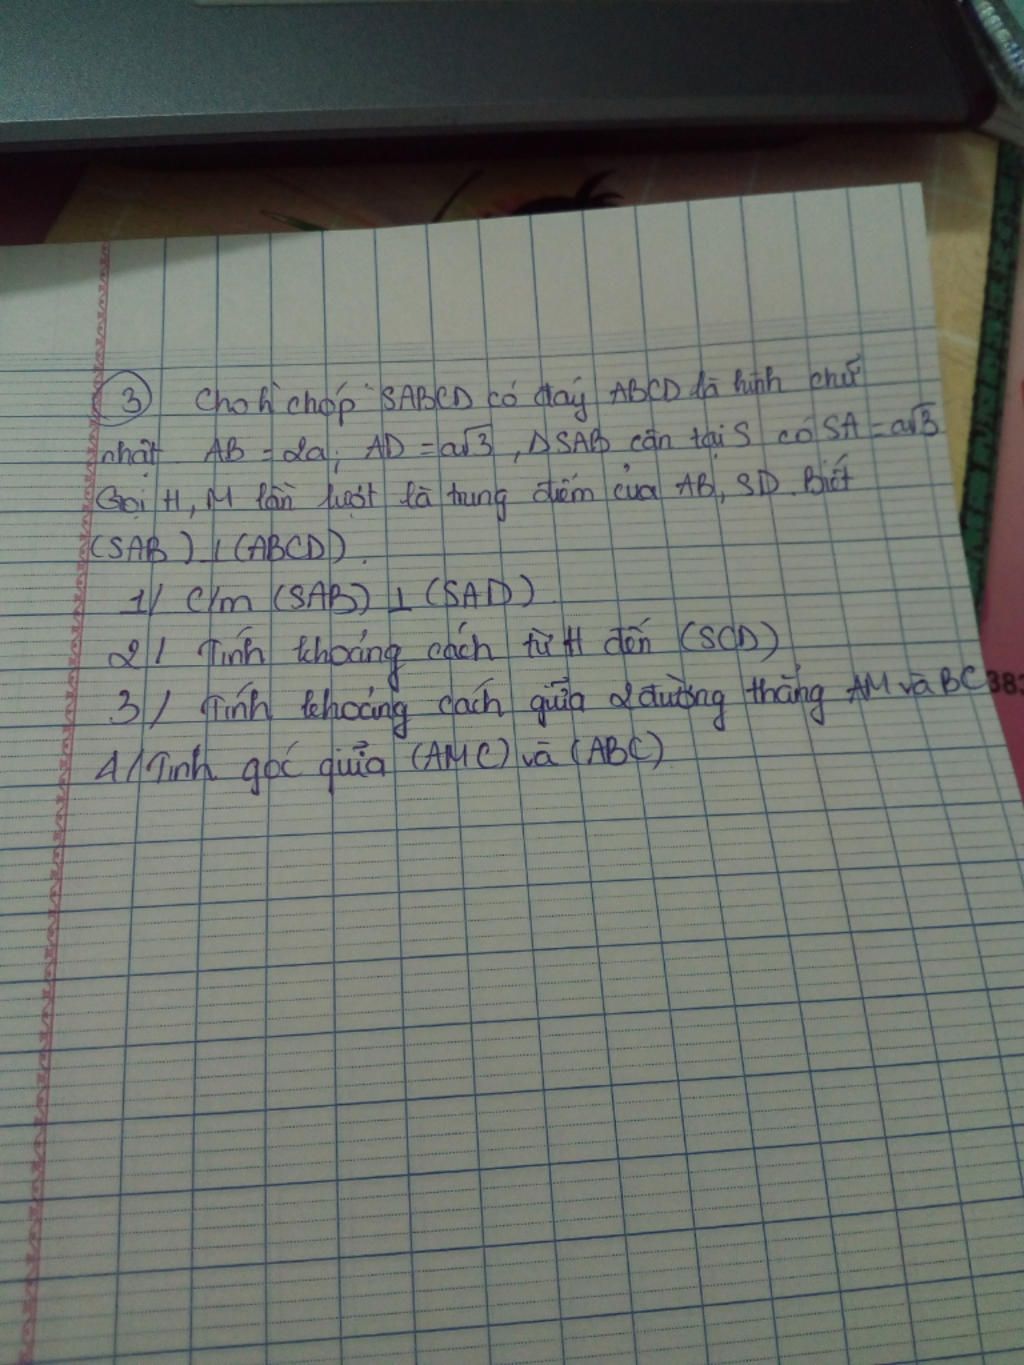 ③ Cho h chóp SABCD có đáy ABCD là hình chữ
nhật AB = 2a; AD = a√3, ΔSAB cân tại S có SA = a√3
Gọi H, M lần lượt là trung điểm của AB, SD. Biết
(SAB) ⊥ (ABCD).
1/ C/m (SAB) ⊥ (SAD)
2/ Tính khoảng cách từ H đến (SCD)
3/ Tính khoảng cách giữa 2 đường thẳng AM và BC
4/ Tính góc giữa (AMC) và (ABC)